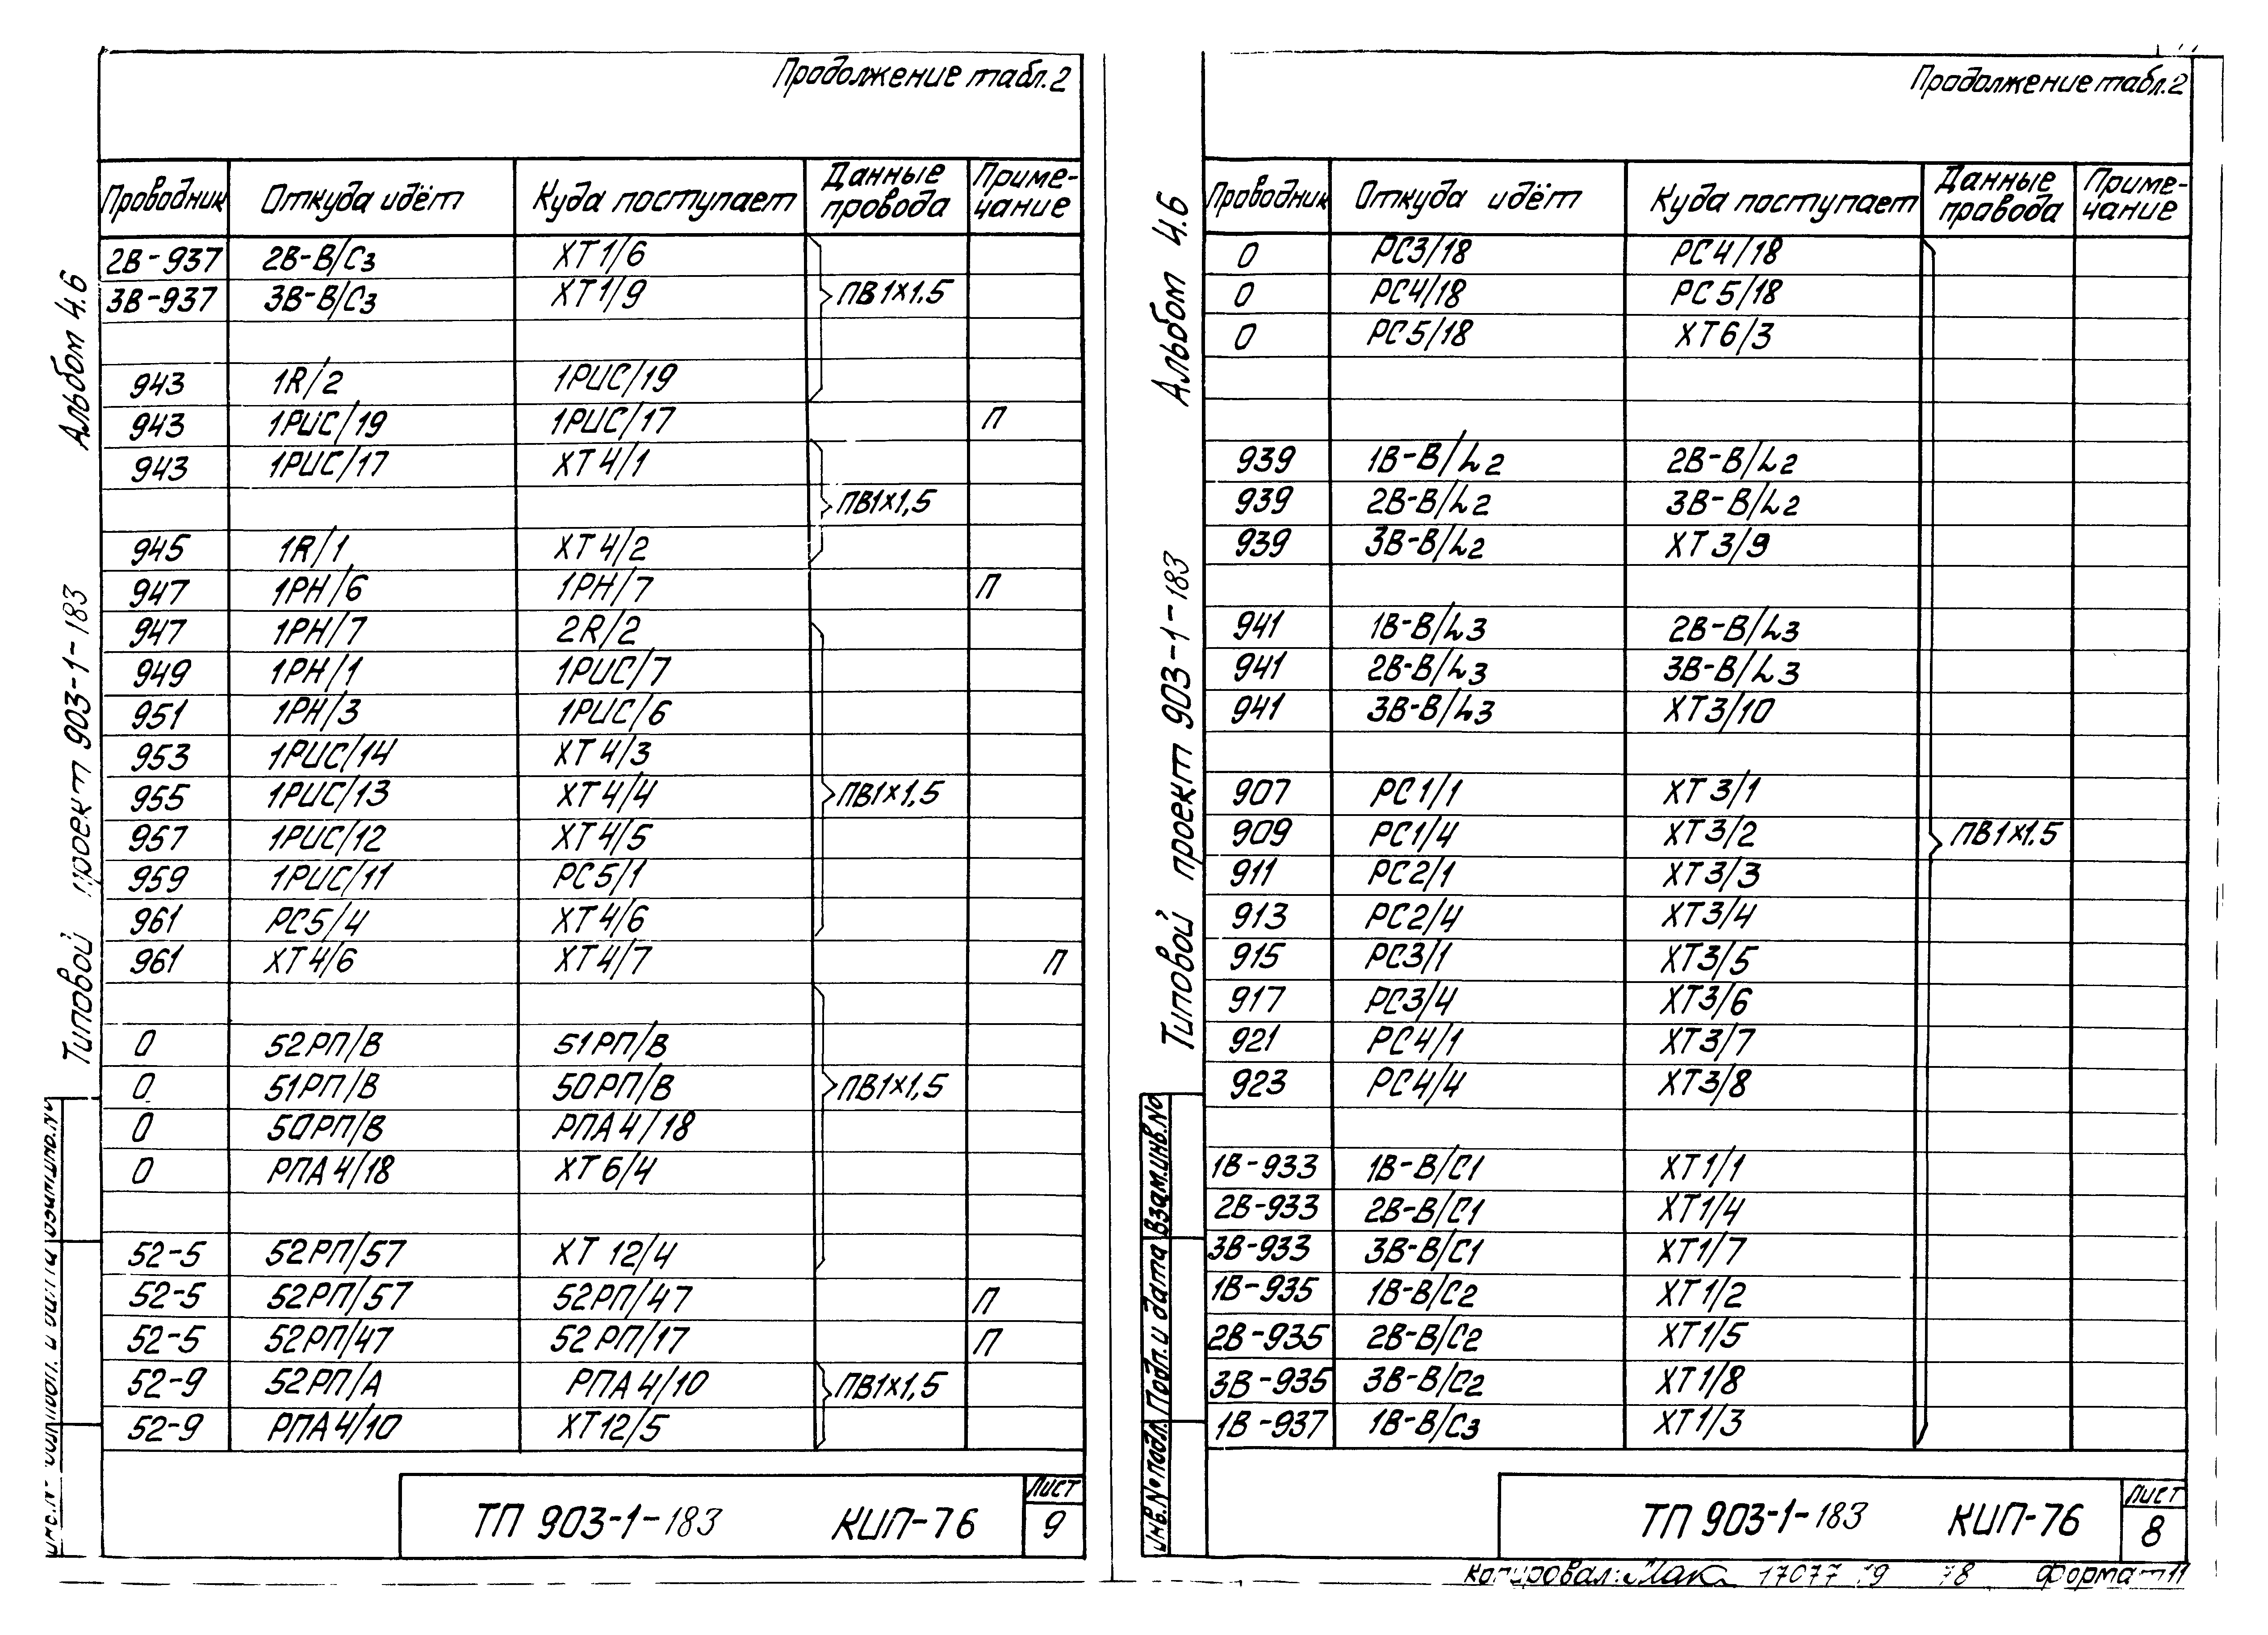 Продолжение табл.2
Проводник Откуда идёт Куда поступает Данные провода Примечание
2В-937 2В-В/С3 ХТ1/6
3В-937 3В-В/С3 ХТ1/9 ПВ1х1.5
943 1R/2 1РИС/19
943 1РИС/19 1РИС/17 П
943 1РИС/17 ХТ4/1
ПВ1х1,5
945 1R/1 ХТ4/2
947 1РН/6 1РН/7 П
947 1РН/7 2R/2
949 1РН/1 1РИС/7
951 1РН/3 1РИС/6
953 1РИС/14 ХТ4/3
955 1РИС/13 ХТ4/4 ПВ1х1,5
957 1РИС/12 ХТ4/5
959 1РИС/11 РС5/1
961 РС5/4 ХТ4/6
961 ХТ4/6 ХТ4/7 П
0 52РП/В 51РП/В
0 51РП/В 50РП/В ПВ1х1,5
0 50РП/В РПА4/18
0 РПА4/18 ХТ6/4
52-5 52РП/57 ХТ12/4
52-5 52РП/57 52РП/47 П
52-5 52РП/47 52РП/17 П
52-9 52РП/А РПА4/10 ПВ1х1,5
52-9 РПА4/10 ХТ12/5
ТП 903-1-183 КИП-76
Лист
9
Типовой проект 903-1-183 Альбом 4.6
Продолжение табл.2
Проводник Откуда идёт Куда поступает Данные провода Примечание
0 РС3/18 РС4/18
0 РС4/18 РС5/18
0 РС5/18 ХТ6/3
939 1В-В/L2 2В-В/L2
939 2В-В/L2 3В-В/L2
939 3В-В/L2 ХТ3/9
941 1В-В/L3 2В-В/L3
941 2В-В/L3 3В-В/L3
941 3В-В/L3 ХТ3/10
907 РС1/1 ХТ3/1
909 РС1/4 ХТ3/2 ПВ1х1.5
911 РС2/1 ХТ3/3
913 РС2/4 ХТ3/4
915 РС3/1 ХТ3/5
917 РС3/4 ХТ3/6
921 РС4/1 ХТ3/7
923 РС4/4 ХТ3/8
1В-933 1В-В/С1 ХТ1/1
2В-933 2В-В/С1 ХТ1/4
3В-933 3В-В/С1 ХТ1/7
1В-935 1В-В/С2 ХТ1/2
2В-935 2В-В/С2 ХТ1/5
3В-935 3В-В/С2 ХТ1/8
1В-937 1В-В/С3 ХТ1/3
ТП 903-1-183 КИП-76
Лист
8
Типовой проект 903-1-183 Альбом 4.6
Инв.№подл. Подп.и дата Взам.инв.№
Копировал: 17077 19 78 Формат 11